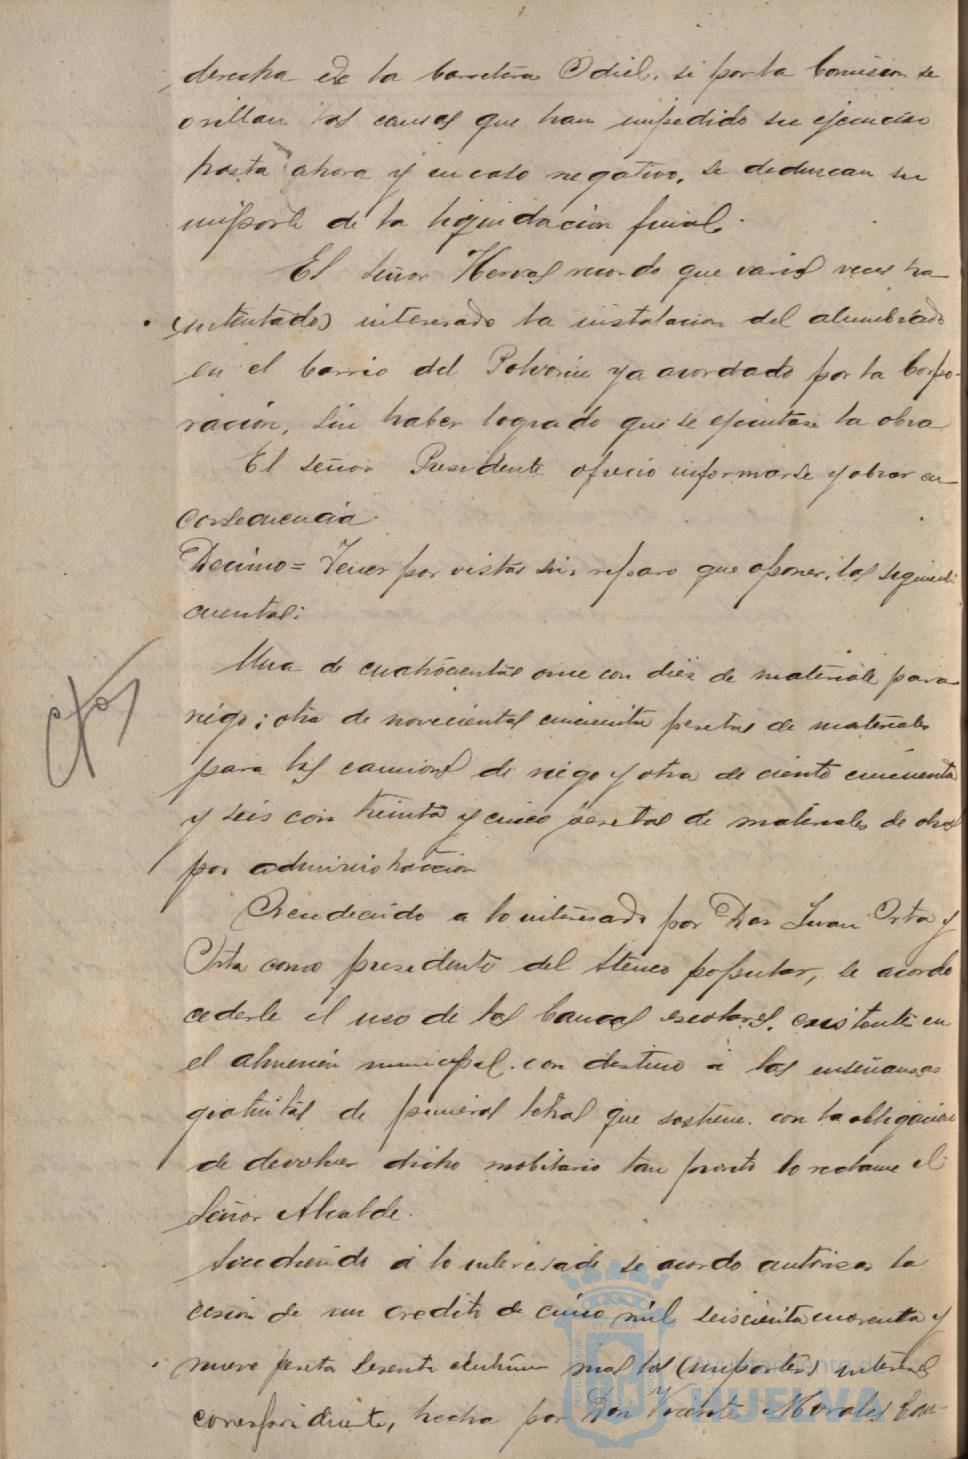 derecha de la Carretera Odiel, si por la Comision se
orillan las causas que han impedido su ejecucion
hasta ahora y en caso negativo, se deduzcan su
importe de la liquidacion final.
El Señor Hervas recordó que varias veces ha
(intentado) interesado la instalacion del alumbrado
en el barrio del Polvorin ya acordado por la Corpo-
ración, sin haber logrado que se ejecutase la obra
El Señor Presidente ofreció informarse y obrar en
consecuencia.
Decimo = Tener por vistas sin reparo que oponer, las siguient.
cuentas:
Una de cuatrocientas once con diez de material para
riego; otra de novecientas cincuenta pesetas de materiales
para los camiones de riego y otra de ciento cincuenta
y seis con treinta y cinco pesetas de materiales de obras
por administracion
Accediendo a lo interesado por Don Juan Orta y
Orta como presidente del Ateneo popular, se acordó
cederle el uso de los bancos escolares existentes en
el almacén municipal con destino a las enseñanzas
gratuitas de primeras letras que sostiene con la obligacion
de devolver dicho mobiliario tan pronto lo reclame el
Señor Alcalde.
Accediendo a lo interesado se acordó autorizar la
cesion de un credito de cinco mil seiscienta cuarenta y
nueve peseta sesenta centimos mas los (importes) intereses
correspondiente, hecha por Don Vicente Morales
Ayuntamiento de
HUELVA